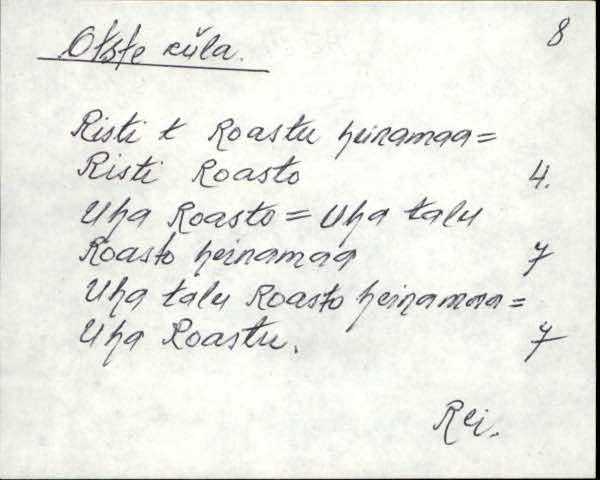 Otste küla. 8
Risti t Roastu heinamaa =
Risti Roasto 4.
Uha Roasto = Uha talu
Roasto heinamaa 7
Uha talu Roasto heinamaa =
Uha Roastu. 7
Rei.